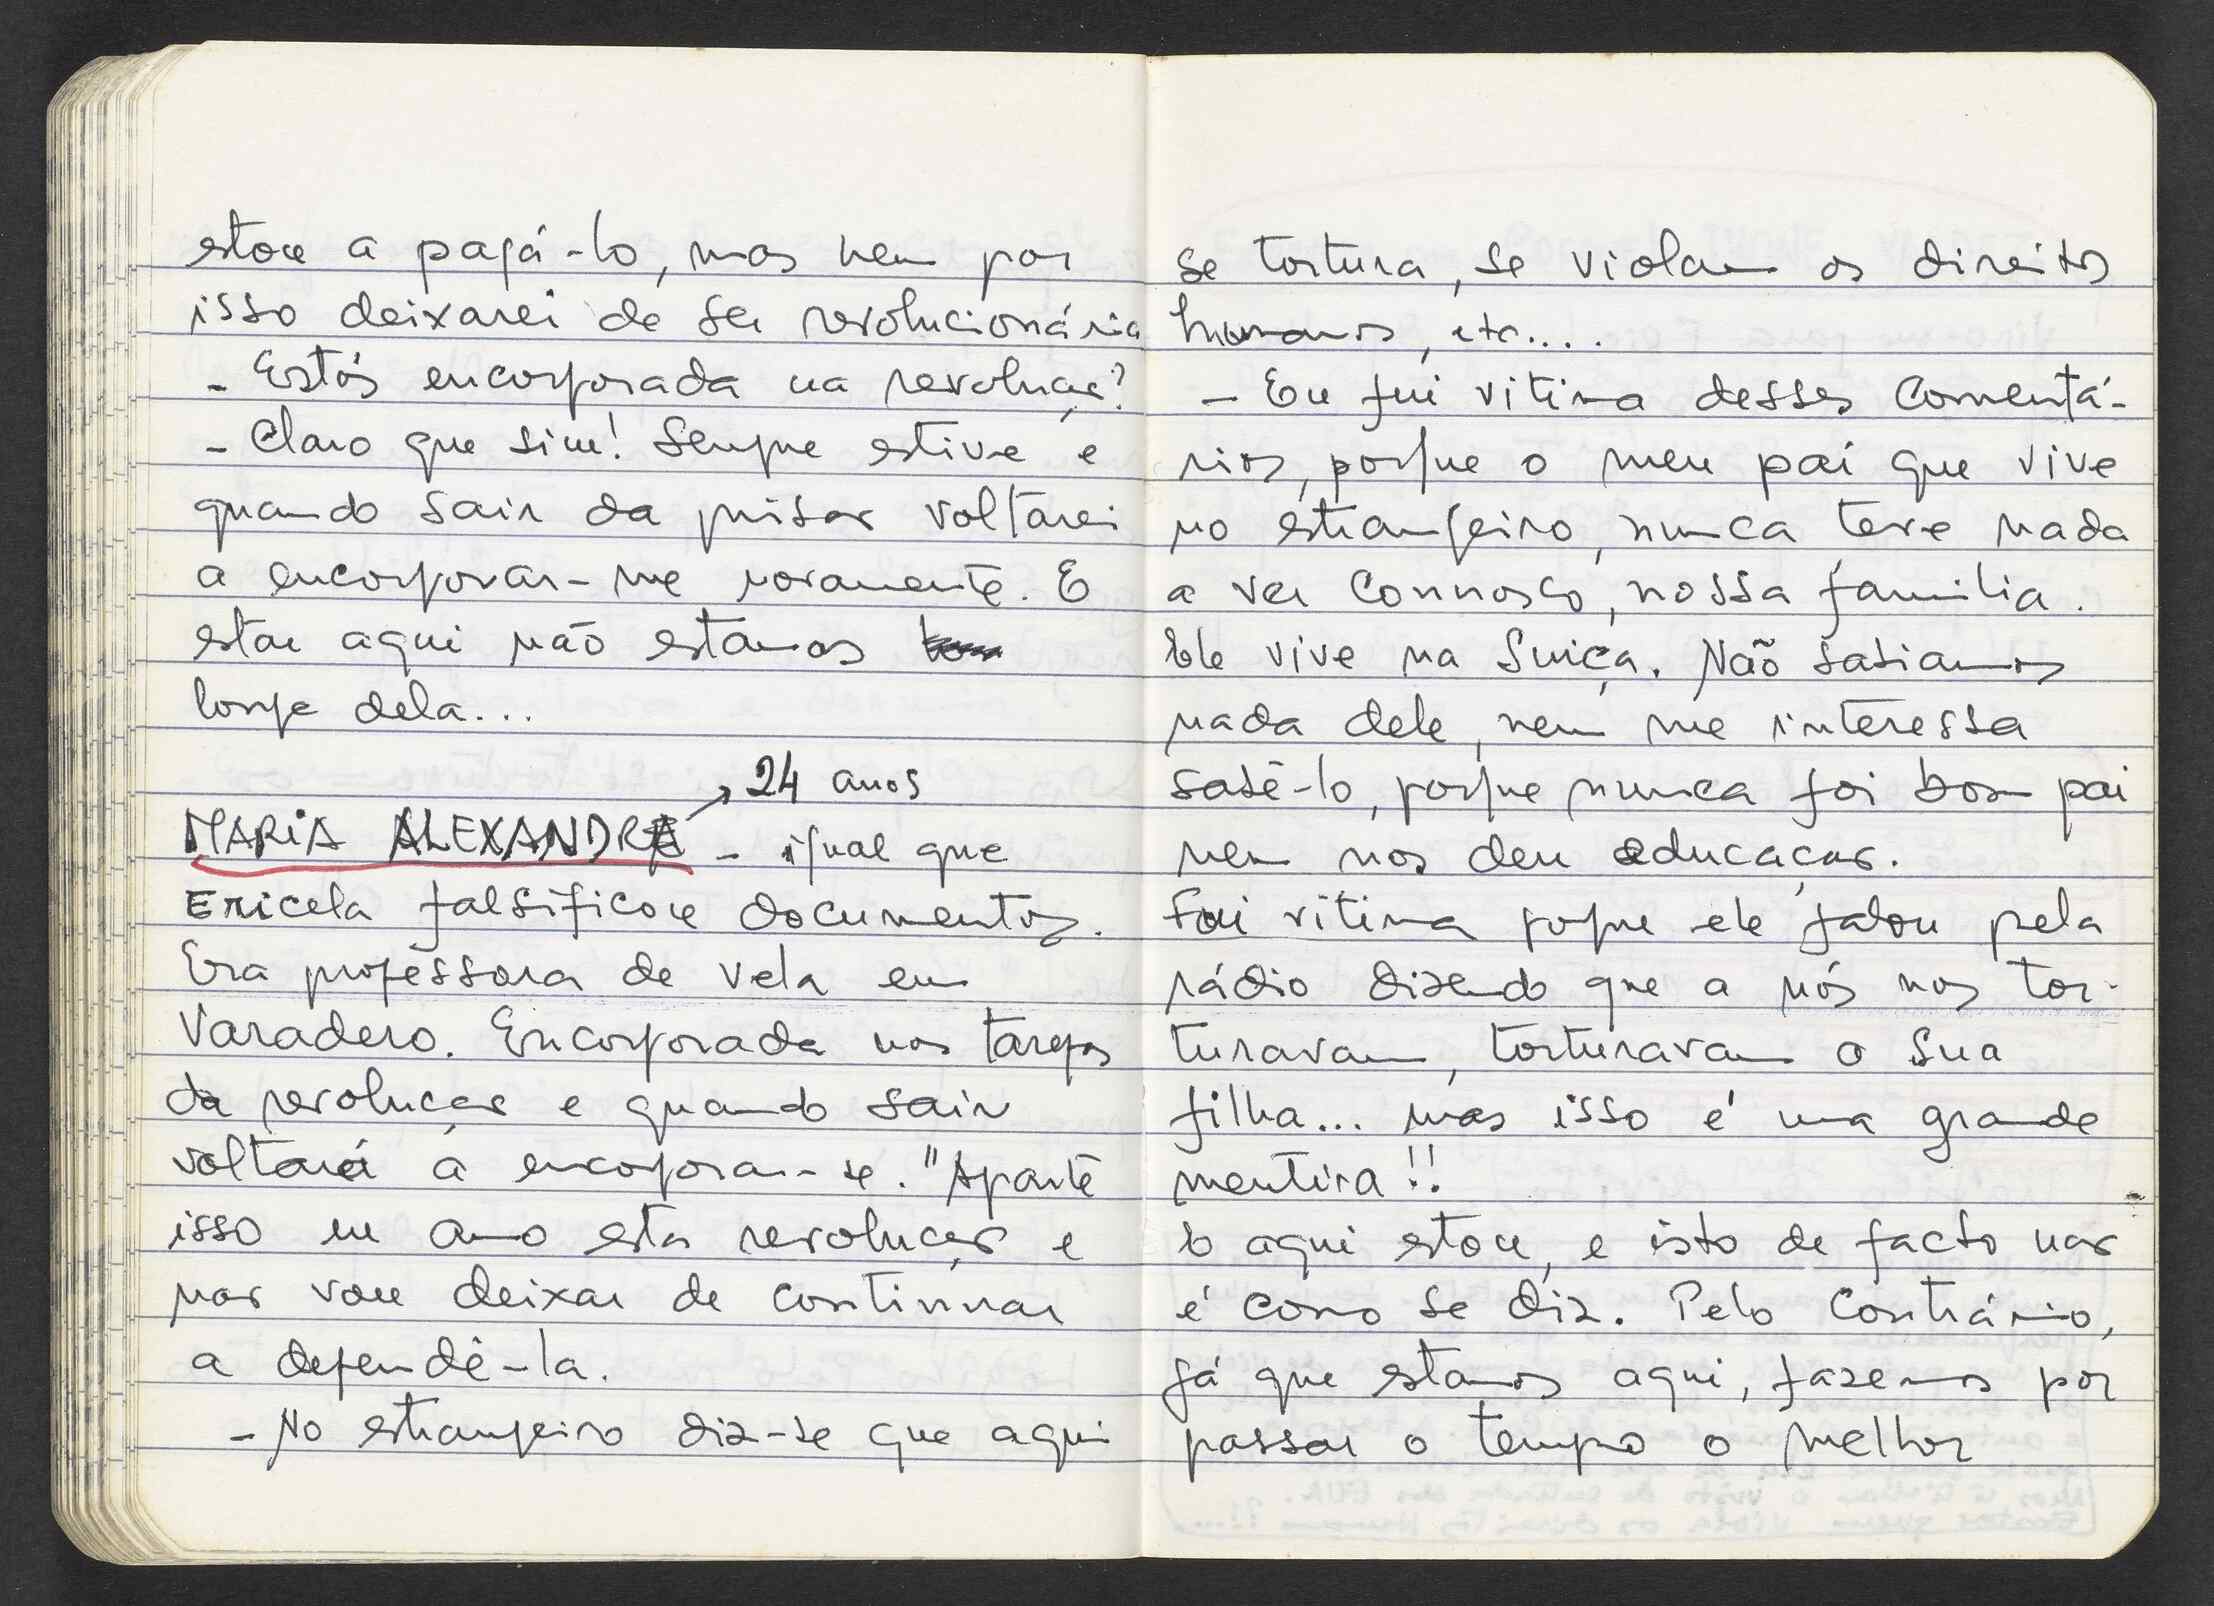 estou a pagá-lo, mas nem por
isso deixarei de ser revolucionária
- Estás encorporada na revolução?
- Claro que sim! Sempre estive e
quando sair da prisão voltarei
a encorporar-me novamente. E
estar aqui não estamos
longe dela...
24 anos
MARIA ALEXANDRA - igual que
Ericela falsificou documentos.
Era professora de vela em
Varadero. Encorporada nas tarefas
da revolução e quando sair
voltará a encorporar-se. "Aparte
isso eu amo esta revolução e
não vou deixar de continuar
a defendê-la.
- No estrangeiro diz-se que aqui
se tortura, se violam os direitos
humanos, etc....
- Eu fui vitima desses comentá-
rios, porque o meu pai que vive
no estrangeiro, nunca teve nada
a ver connosco, nossa familia.
Ele vive na Suiça. Não sabiamos
nada dele, nem me interessa
sabê-lo, porque nunca foi bom pai
nem nos deu educação.
Fui vitima porque ele falou pela
rádio dizendo que a nós nos tor-
turavam, torturavam a sua
filha... mas isso é uma grande
mentira!!
E aqui estou, e isto de facto não
é como se diz. Pelo contrário,
já que estamos aqui, fazemos por
passar o tempo o melhor